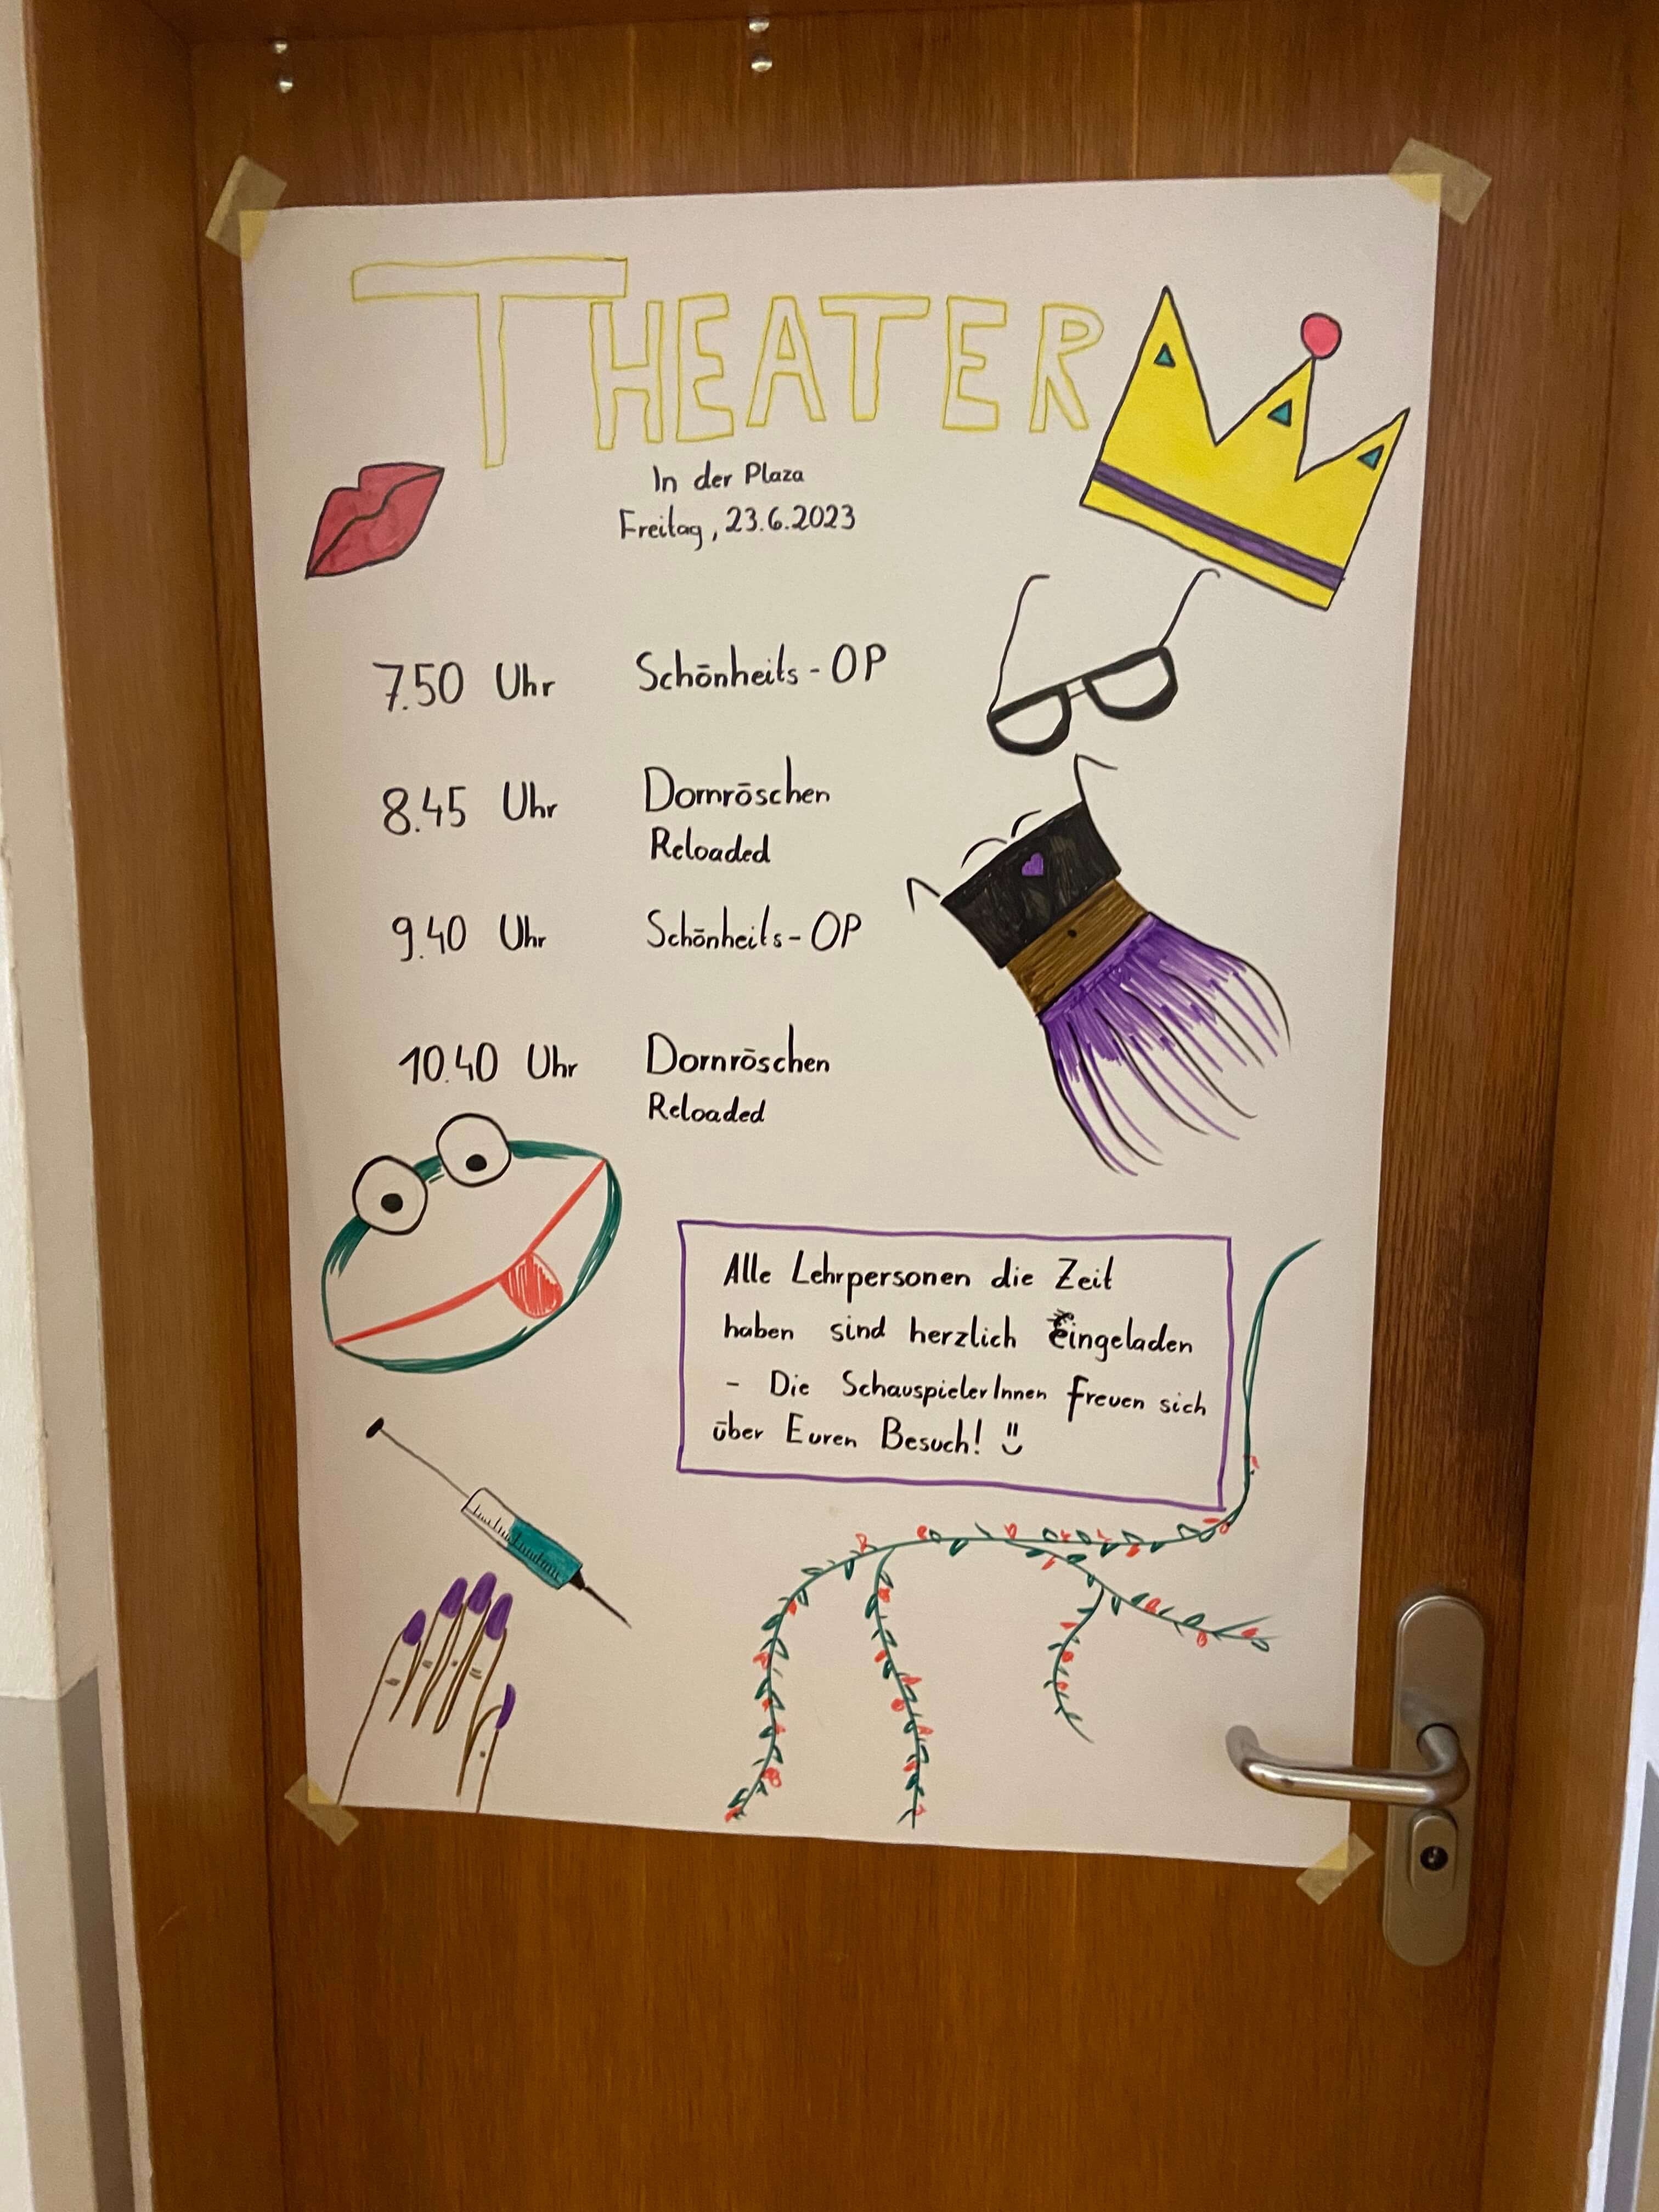 THEATER
In der Plaza
Freitag, 23.6.2023
7.50 Uhr Schönheits-OP
8.45 Uhr Dornröschen
Reloaded
9.40 Uhr Schönheits-OP
10.40 Uhr Dornröschen
Reloaded
Alle Lehrpersonen die Zeit
haben sind herzlich eingeladen
- Die SchauspielerInnen freuen sich
über Euren Besuch! ü